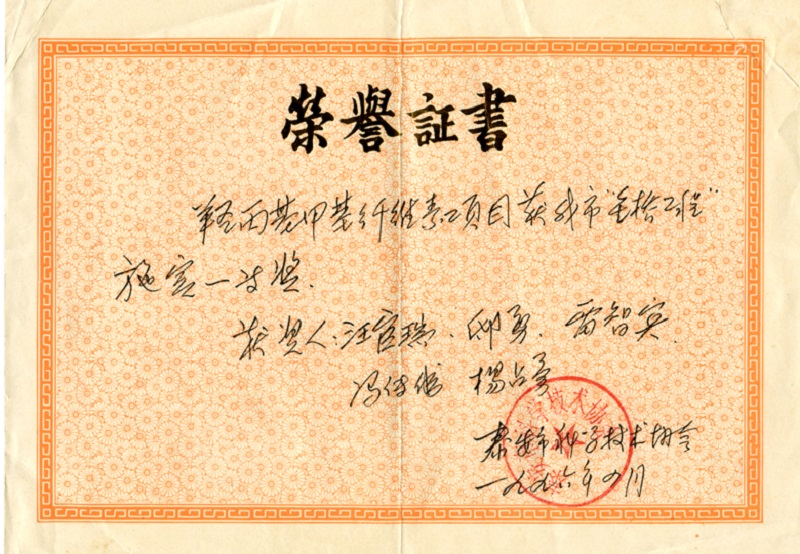 榮譽証書
羟丙基甲基纤维素项目获我市"金桥工程"
施实一等奖.
获奖人:汪官瑞、邱勇、雷智实、
冯传 杨占
泰安市科学技术协会
一九九六年四月